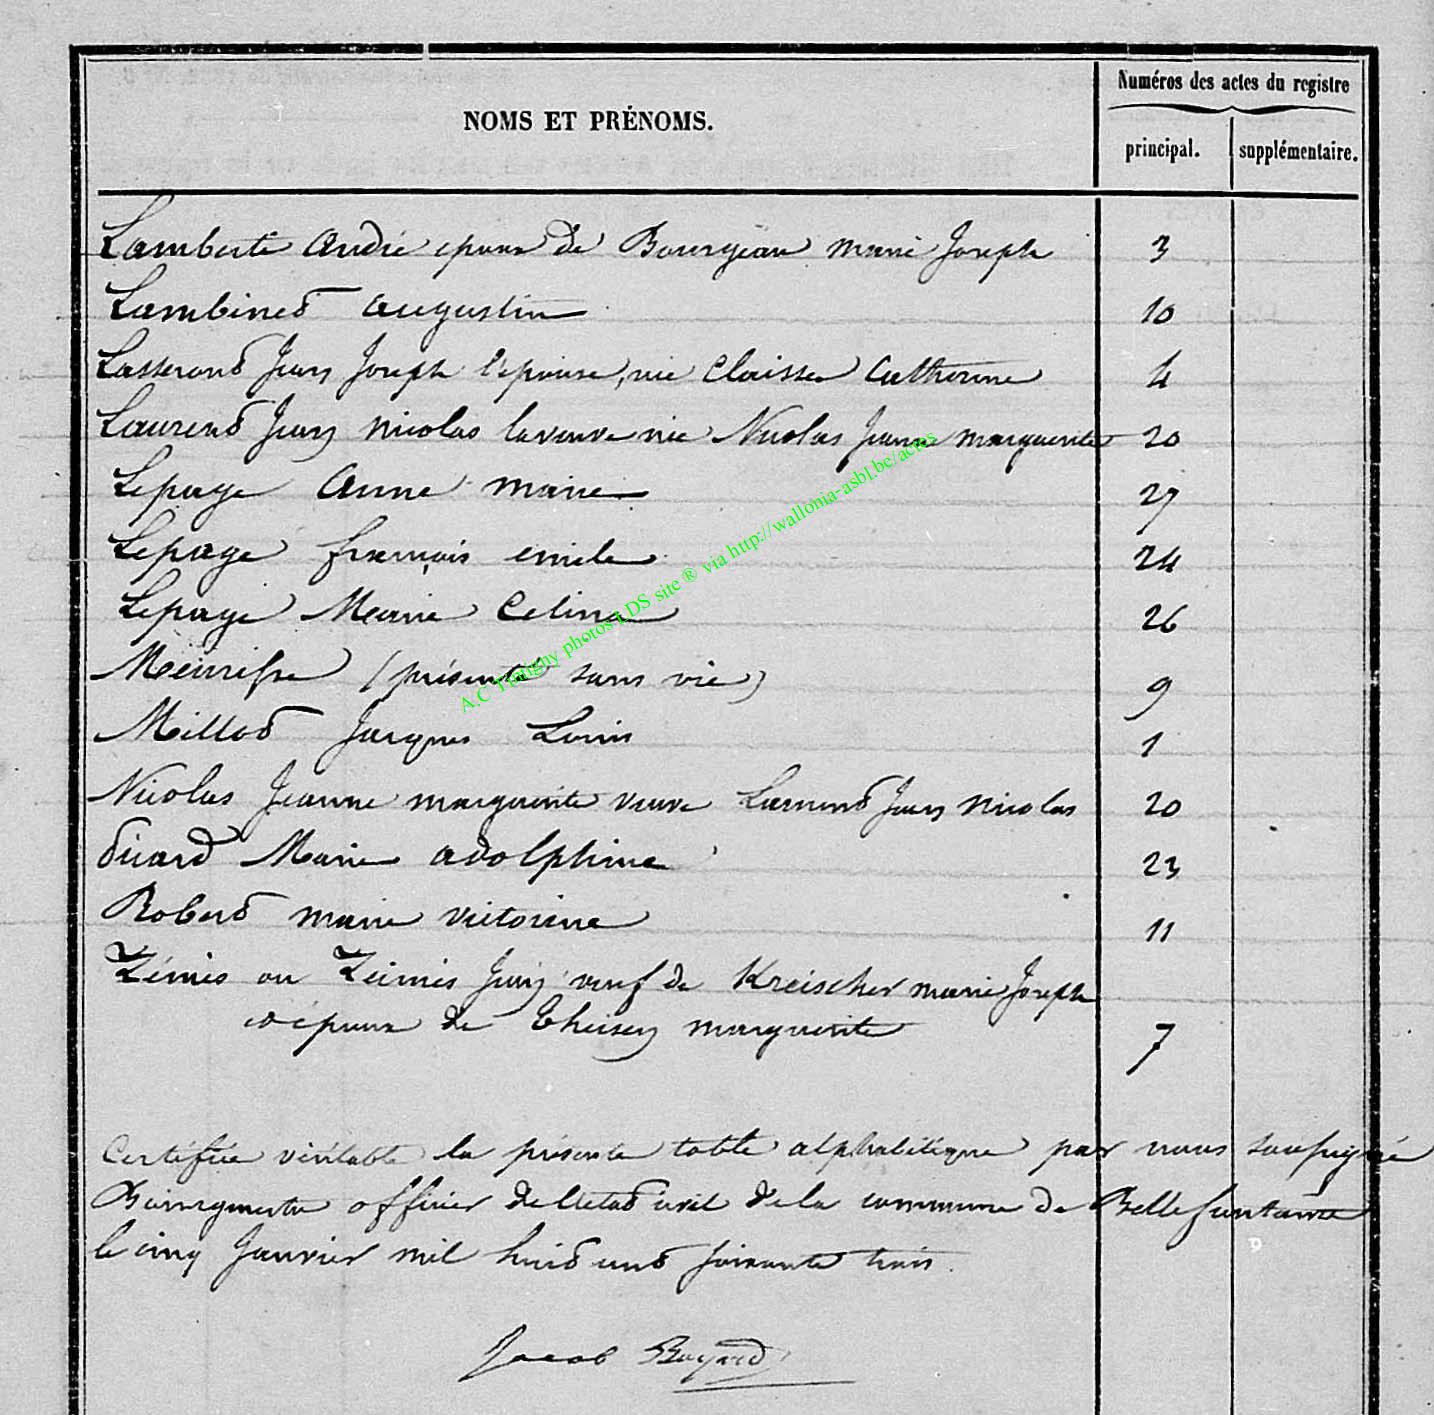 Numéros des actes du registre
NOMS ET PRÉNOMS.
principal. supplémentaire.
Lambert André epoux de Bourgeau Marie Joseph 3
Lambinet Augustin 10
Lasserout Jean Joseph l'epouse, née Claisse Catherine 4
Laurent Jean Nicolas la veuve née Nicolas Jeanne marguerite 20
Lepage Anne Marie 27
Lepage françois emile 24
Lepage Marie Celina 26
(présenté sans vie) 9
Millot Jacques Louis 1
Nicolas Jeanne marguerite veuve Laurent Jean Nicolas 20
Marie adolphine 23
Robert Marie victorine 11
Zémes ou Zeimes Jean veuf de Kreischer marie Joseph
et epoux de Theisen marguerite 7
Certifiée véritable la présente table alphabétique par nous soussigné
Bourgmestre officier de l'etat civil de la commune de Bellefontaine
le cinq Janvier mil huit cent soixante trois.
Jacob Bayard
A.C Tintigny photos LDS site ® via http://wallonia-asbl.be/actes